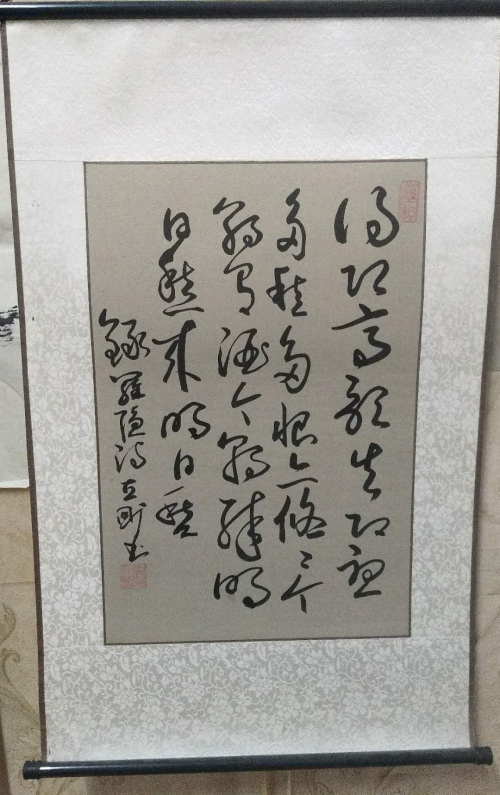 得即高歌失即休
多愁多恨亦悠々今
朝有酒今朝醉明
日愁来明日愁
録羅隐诗 书